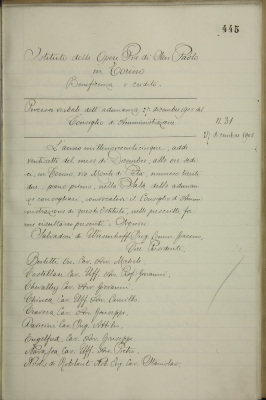 445
Istituto delle Opere Pie di San Paolo
in Torino
Beneficenza e credito.
Processo verbale dell'adunanza 27 dicembre 1905 del
Consiglio di Amministrazione
N. 31
27 dicembre 1905
L'anno millenovecentocinque, addì
ventisette del mese di Dicembre, alle ore sedi-
ci, in Torino, via Monte di Pietà, numero trenta
due, piano primo, nella Sala delle adunan-
ze consigliari, convocatosi il Consiglio d'Ammi-
nistrazione di questo Istituto, nelle prescritte for-
me risultano presenti i Signori
Vice Presidente
Avv. Michele
Cav. Uff. Avv. Prof. Giovanni
Chevalley Cav. Avv. Giovanni
Cav. Uff. Avv. Camillo
Craveri Cav. Avv. Giuseppe
Cav. Ing. Attilio
Engelfred Cav. Avv. Giuseppe
Cav. Uff. Avv. Pietro
Nicolis di Robilant Cav. Stanislao